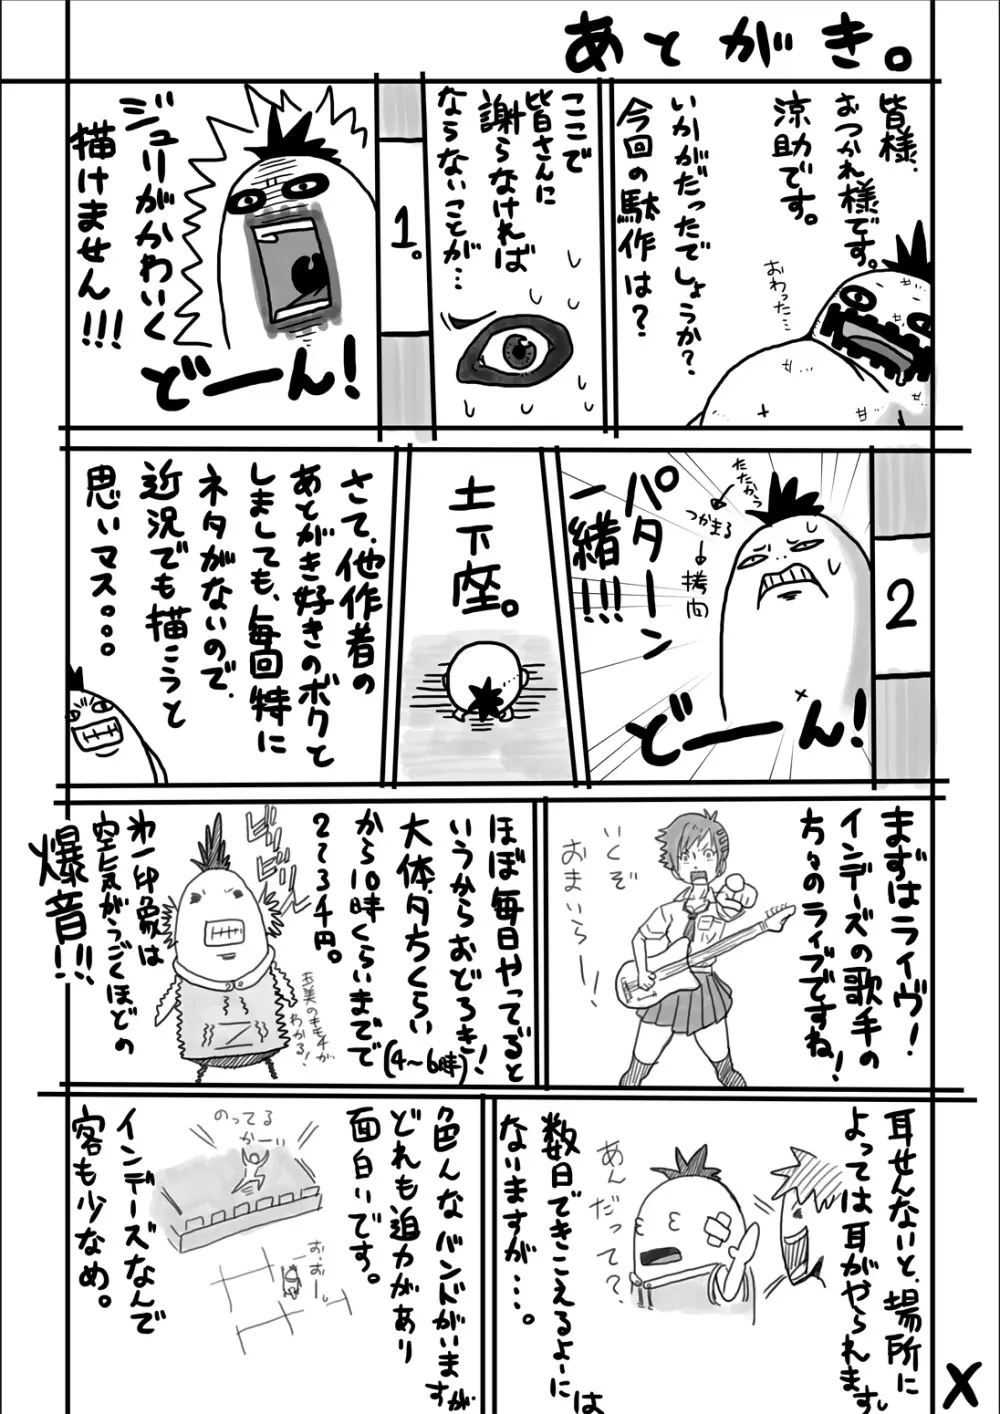 あとがき。
皆様、
おつかれ様です。
涼助です。
いかがだったでしょうか?
今回の駄作は?
おわった…
ここで
皆さんに
謝らなければ
ならないことが…
1.
ジュリがかわいく
描けません!!!
どーーん!
2
たたかう
つかまる
拷問
パターン
一緒!!!
どーーん!
土下座。
さて、他作者の
あとがき好きのボクと
しましても、毎回特に
ネタがないので、
近況でも描こうと
思いマス。。。
まずはライヴ!
インデーズの歌手の
ちょのライブですね!
いくぞ
おまいらー!!
ほぼ毎日やってると
いうからおどろき!
大体夕方くらい
(4~6時)
から10時くらいまでで
2~3千円。
ビリビリ
ビリビリ
第一印象は
空気がうごくほどの
爆音!!!
玉美のキモチが
わかる!
耳せんないと、場所に
よっては耳がやられます。
数日できこえるよーには
ないますが…。
あんだって?
色んなバンドがいますが
どれも迫力があり
面白いです。
のってる
かーい
お、おー。
インデーズなんで
客も少なめ。
X